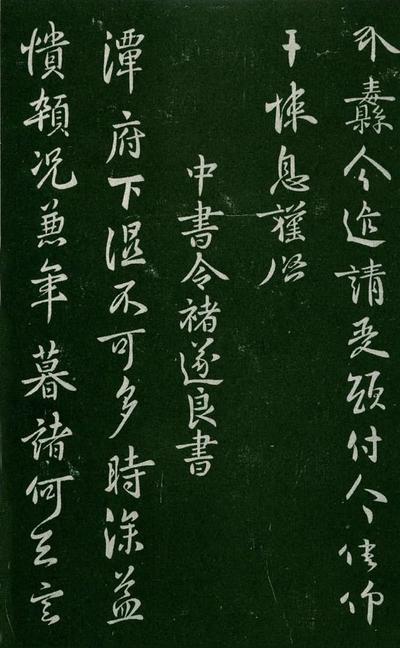 纛今迄請受領付今使仰
干悚息謹啓
中書令褚遂良書
潭府下濕不可多時深益
憒頓況兼年暮諸何足言